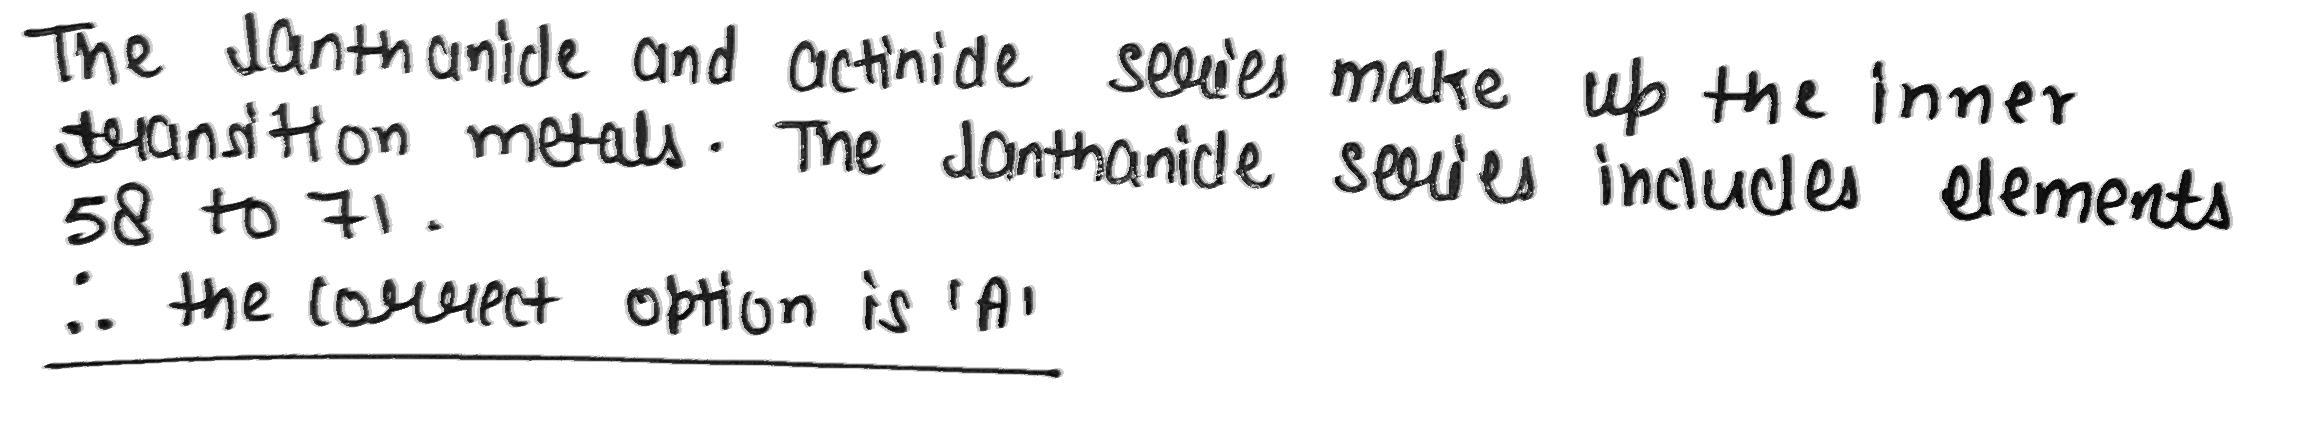 The lanthanide and actinide series make up the inner
transition metals. The lanthanide series includes elements
58 to 71.
∴ the correct option is 'A'